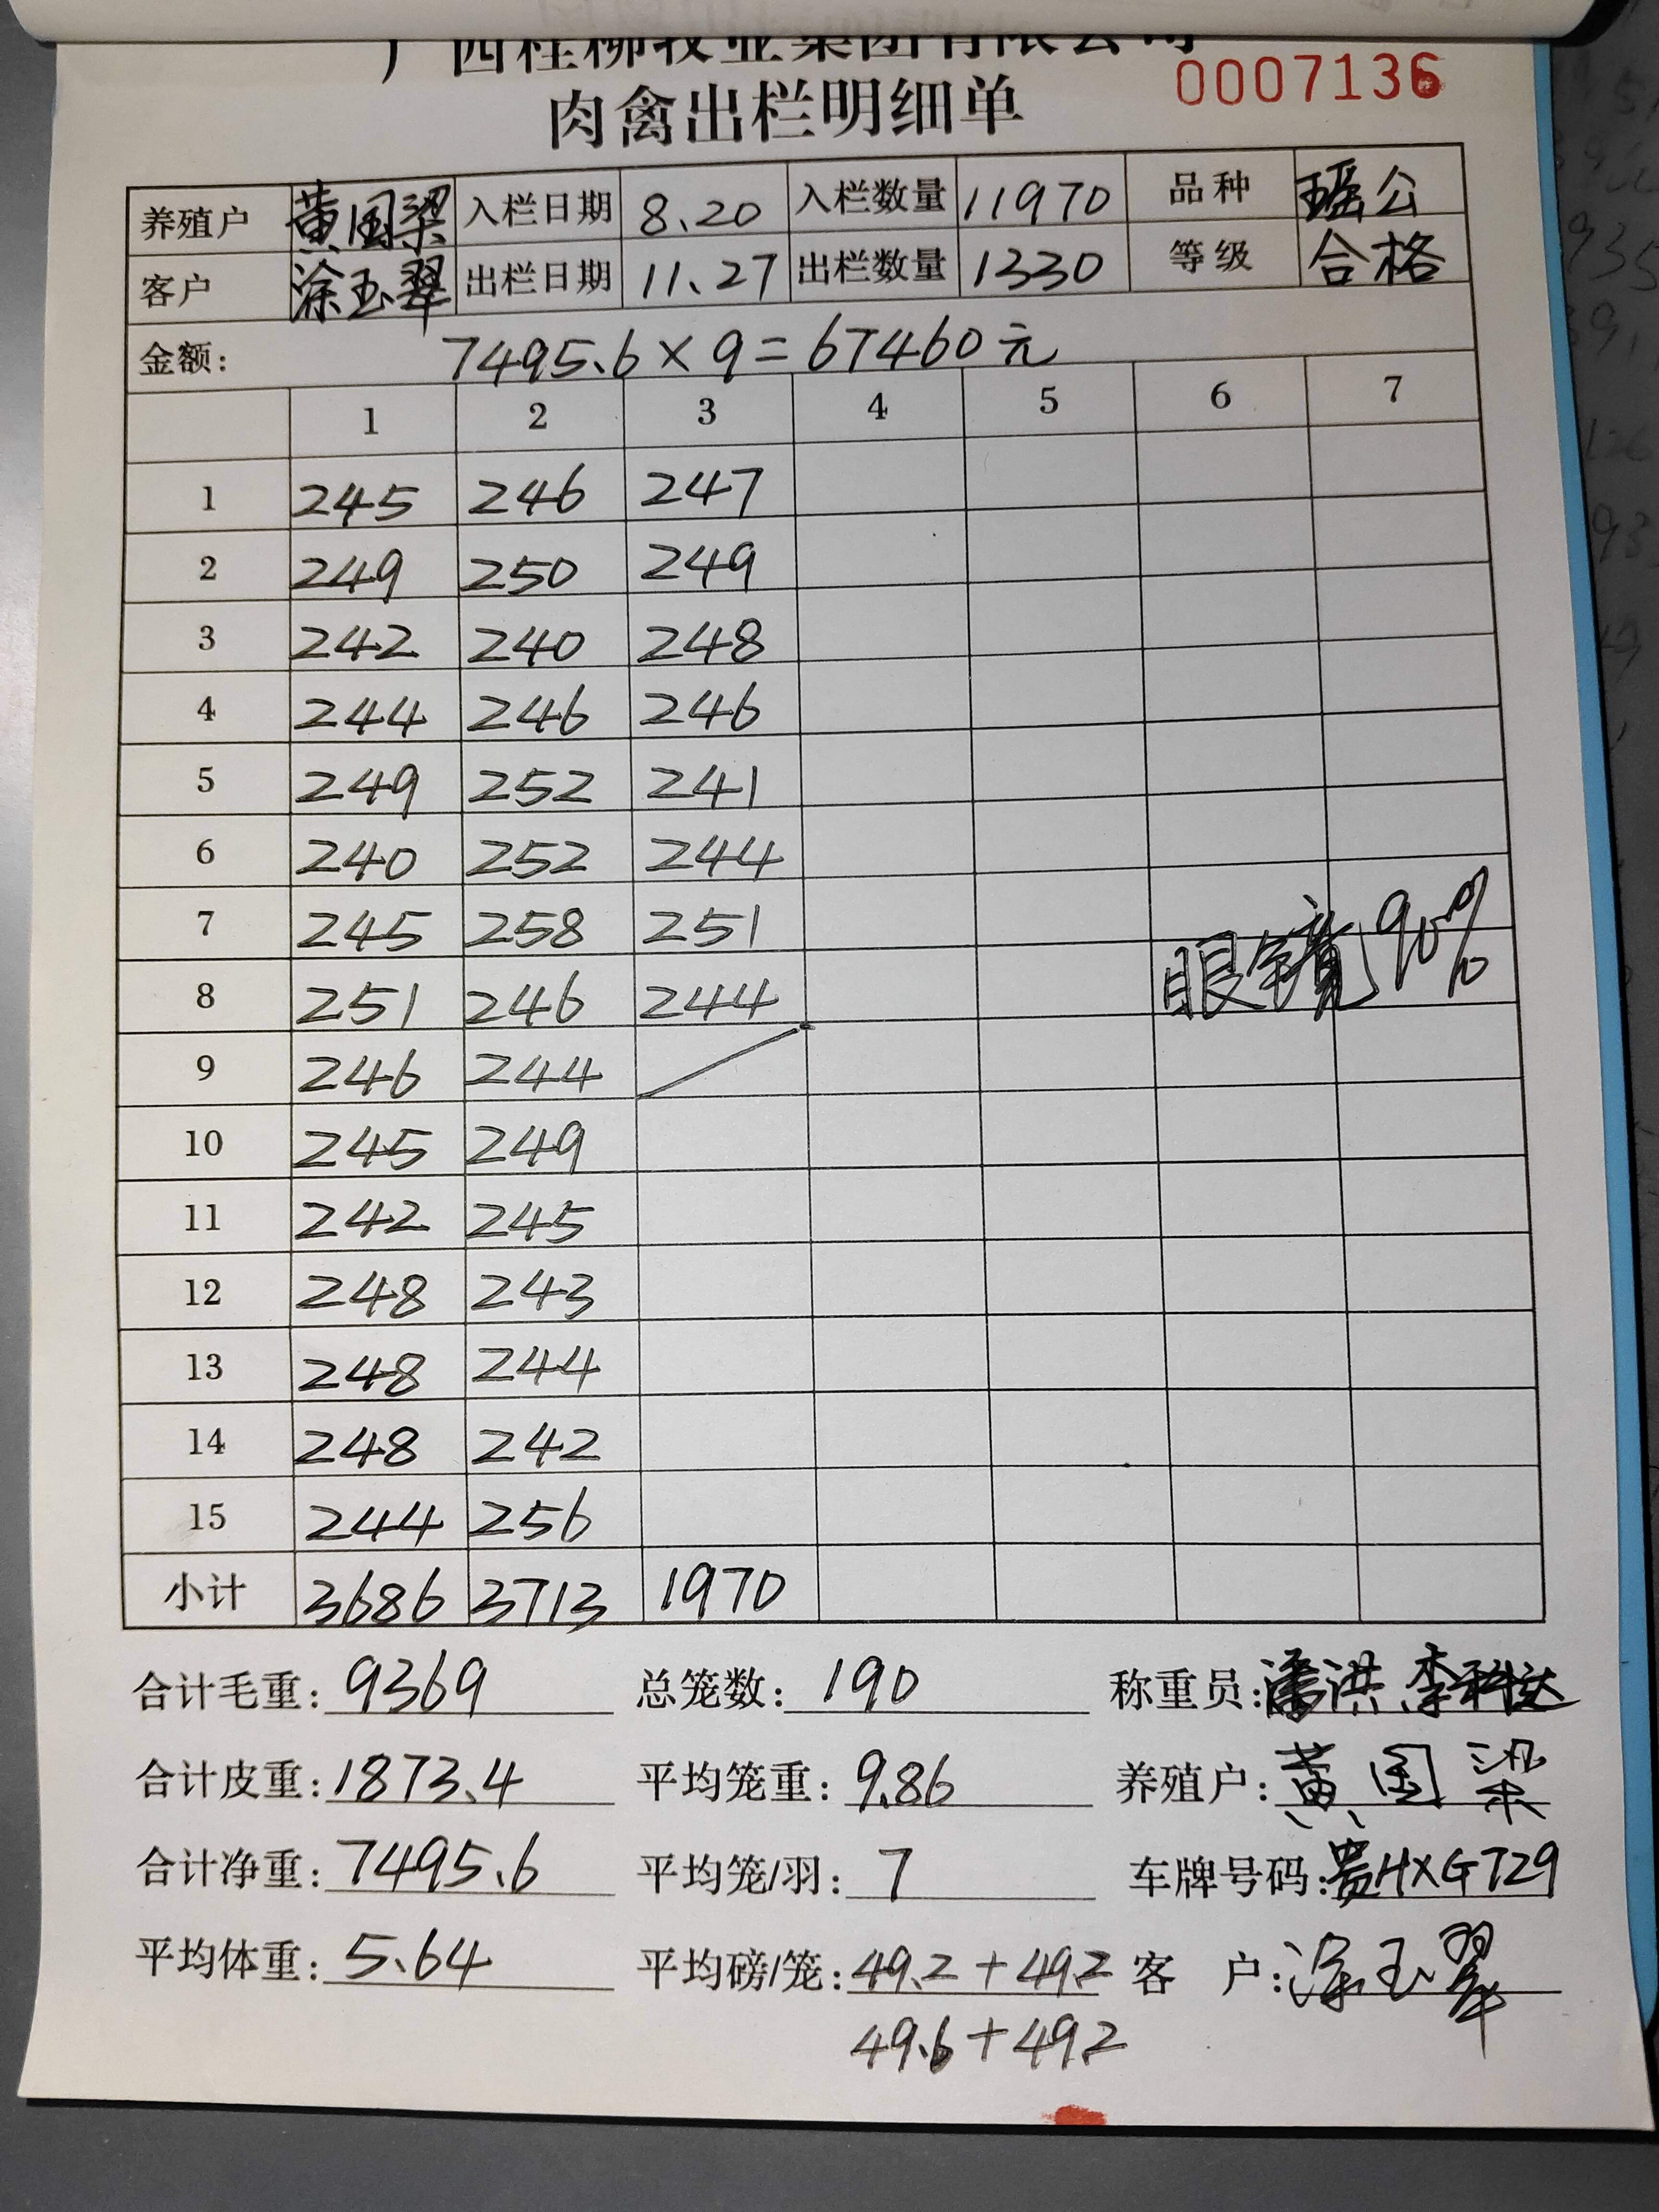 广西桂柳牧业集团有限公司
0007136
肉禽出栏明细单
养殖户 黄国梁 入栏日期 8.20 入栏数量 11970 品种 瑶公
客户 涂玉翠 出栏日期 11.27 出栏数量 1330 等级 合格
金额: 7495.6×9=67460元
1 2 3 4 5 6 7
1 245 246 247
2 249 250 249
3 242 240 248
4 244 246 246
5 249 252 241
6 240 252 244
7 245 258 251
眼镜90%
8 251 246 244
9 246 244
10 245 249
11 242 245
12 248 243
13 248 244
14 248 242
15 244 256
小计 3686 3713 1970
合计毛重: 9369 总笼数: 190 称重员: 潘洪 李科达
合计皮重: 1873.4 平均笼重: 9.86 养殖户: 黄国梁
合计净重: 7495.6 平均笼/羽: 7 车牌号码: 贵HXG729
平均体重: 5.64 平均磅/笼: 49.2+49.2 客 户: 涂玉翠
49.6+49.2